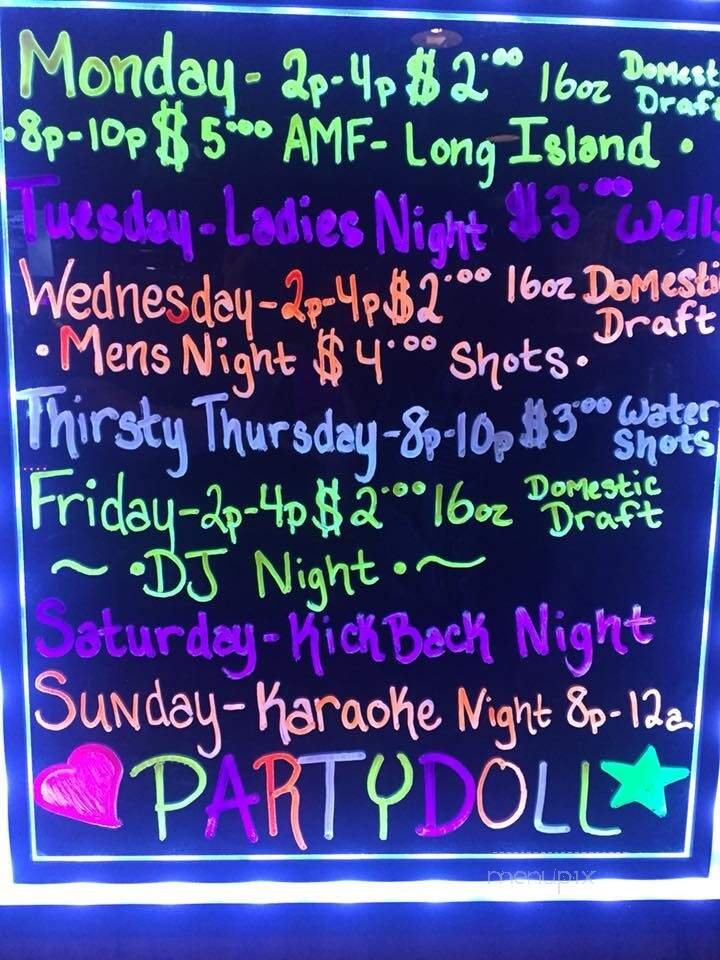 Monday - 2p-4p $2.00 16oz Domest
Draf
•8p-10p $5.00 AMF- Long Island •
Tuesday - Ladies Night $3.00 Well
Wednesday - 2p-4p $2.00 16oz Domesti
Draft
• Mens Night $4.00 Shots •
Thirsty Thursday - 8p-10p $3.00 Water
Shots
Friday - 2p-4p $2.00 16oz Domestic
Draft
~ • DJ Night • ~
Saturday - Kick Back Night
Sunday - Karaoke Night 8p-12a
PARTYDOLL
menupix